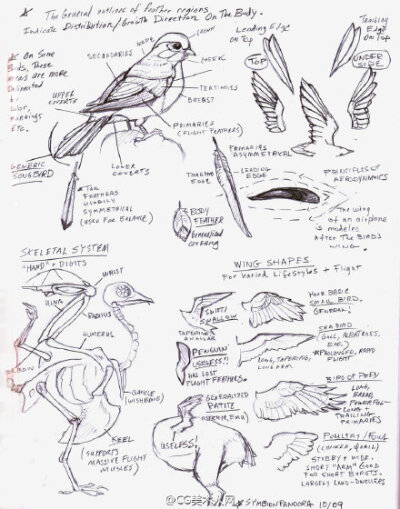 The General outlines of feather regions
Indicate Distribution/Growth Direction On The Body.
CROWN
NAPE
CHEEK
SECONDARIES
TERTIARIES
BREAST
UPPER
COVERTS
PRIMARIES
(FLIGHT FEATHERS)
LOWER
COVERTS
GENERIC
SONGBIRD
On Some
Birds, These
Areas are more
by
Color,
Markings
Etc.
Leading Edge
On Top
TOP
Trailing
Edge
On Top
UNDER
SIDE
PRIMARIES
ASYMMETRICAL
Tail
Feathers
Usually
Symmetrical
(Used For Balance)
Body
Feather
Generalized
Covering
TRAILING
EDGE
LEADING
EDGE
PRINCIPLES OF
AERODYNAMICS
The wing
of an airplane
is modeled
After The Birds
Wing.
SKELETAL SYSTEM
"HAND" + DIGITS
WRIST
ULNA
RADIUS
HUMERUS
ELBOW
(WISHBONE)
KEEL
(SUPPORTS
MASSIVE FLIGHT
MUSCLES)
WING SHAPES
For Varied Lifestyles + Flight
SWIFT/
SWALLOW
TAPERING
ANGULAR
More Basic
SMALL BIRD.
GENERAL!
SEA BIRD
(GULL, ALBATROSS,
ETC.)
PROLONGED, RAPID
FLIGHT
LONG, TAPERING,
LONG ARM
PENGUIN
USELESS!!
HAS LOST
FLIGHT FEATHERS.
BIRD OF PREY
LONG,
BROAD,
POWERFUL
LONG +
TRAILING
PRIMARIES
GENERALIZED
RATITE
(OSTRICH, EMU)
USELESS
POULTRY/FOWL
(CHICKEN, QUAIL)
STUBBY + WIDE.
SHORT "ARM" GOOD
FOR SHORT BURSTS.
LARGELY LAND-DWELLERS
SYMBIONPANDORA 10/09